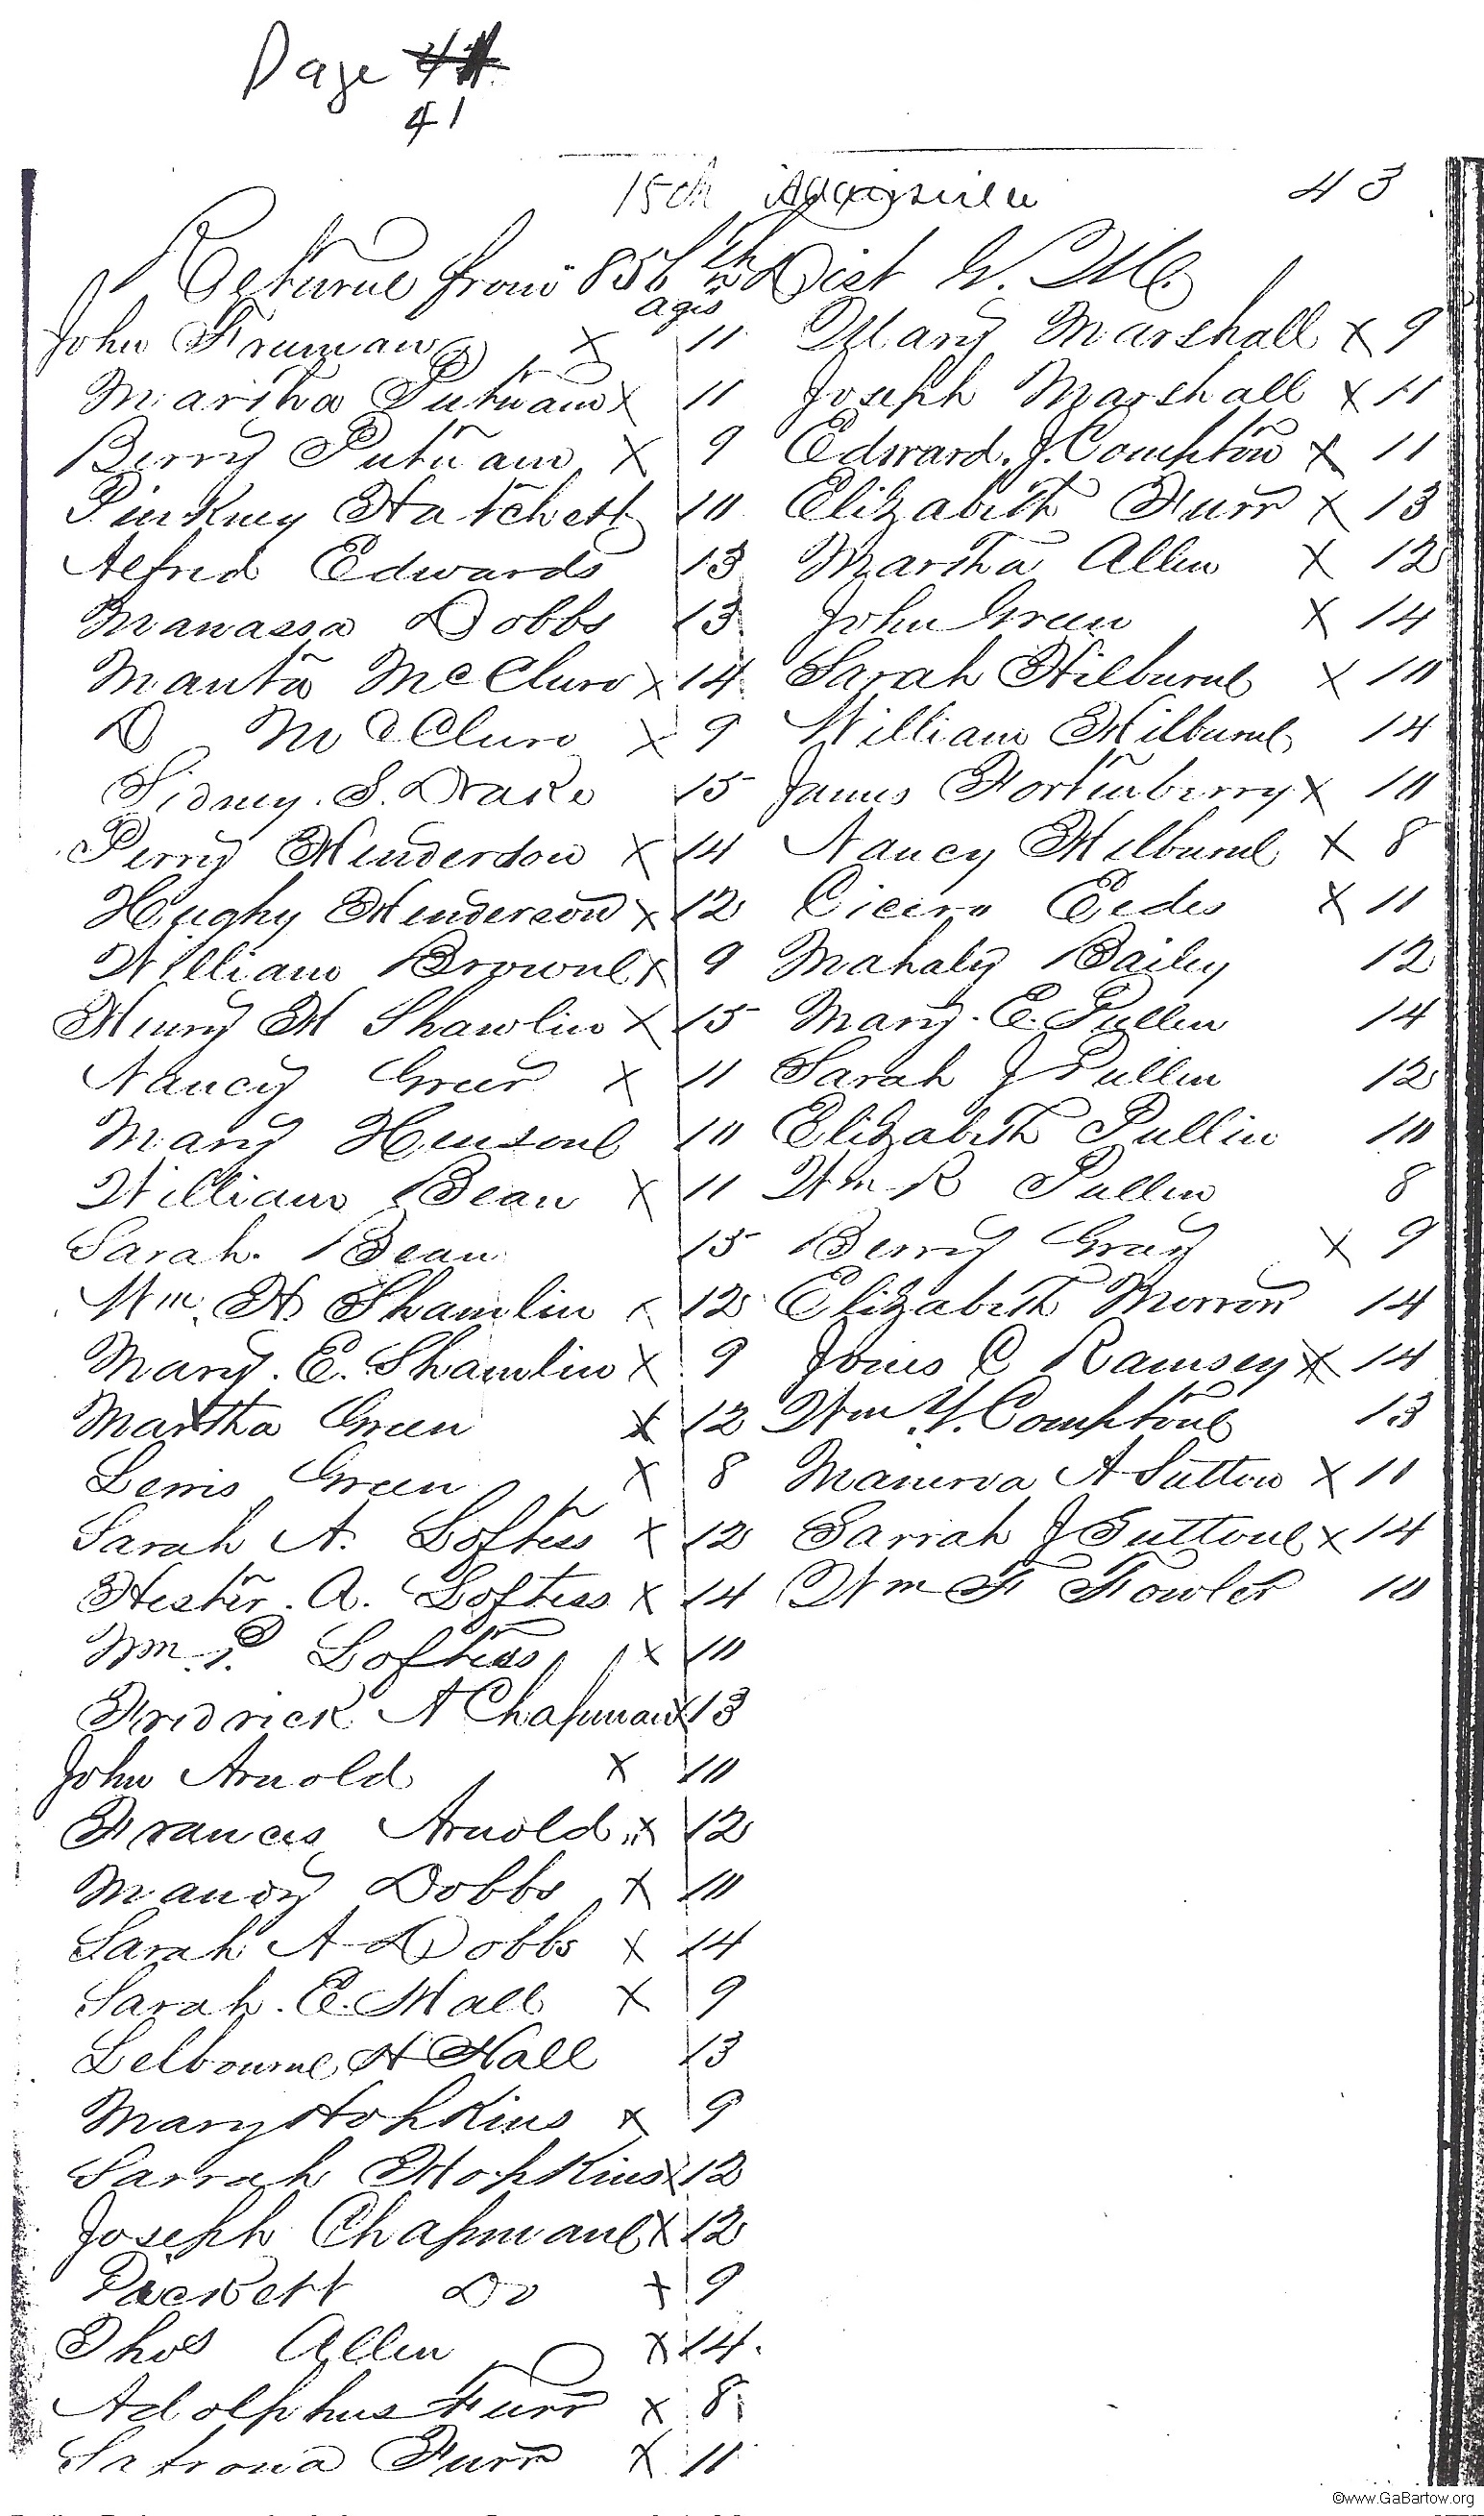 Page 41
41
15th 43
Returne from 856th Dist G. M.
ages
John Truman X 11
Martha Putnam X 11
Berry Putnam X 9
Pinkney Hatchett 10
Alfred Edwards 13
Manassa Dobbs 13
Manta McClure X 14
D McClure X 9
Sidney. S. Drake 15
Perry Henderson X 14
Hughy Henderson X 12
William Browne X 9
Henry H Shawlin X 15
Nancy Greer X 11
Mary Hensone 10
William Bean X 11
Sarah. Bean 15
Wm. H. Shamlin x 12
Mary. E. Shamlin X 9
Martha Green X 12
Lewis Green X 8
Sarah A. Loftess X 12
Hester. A. Loftess X 14
Wm. P. Loftess X 10
Fridrick A Chapman X 13
John Arnold X 10
Frances Arnold X 12
Mandy Dobbs X 10
Sarah A Dobbs X 14
Sarah. E. Hall X 9
Lelbourne H Hall 13
Mary Hopkins X 9
Sarrah Hopkins X 12
Joseph Chapmane X 12
Puckett Do X 9
Thos Allen X 14.
Adolphus Furr X 8
Satrona Furr X 11
Mary Marshall X 9
Joseph Marshall X 11
Edward. J. Compton X 11
Elizabeth Furr X 13
Martha Allen X 12
John Green X 14
Sarah Hilburne X 10
William Hilburne 14
James Fortenberry X 10
Nancy Hilburne X 8
Cicero Eedes X 11
Mahaly Bailey 12
Mary. E. Pullen 14
Sarah J Pullen 12
Elizabeth Pullin 10
Wm R Pullen 8
Berry Gray X 9
Elizabeth Morrow 14
Jones C Ramsey X 14
Wm Y. Comptone 13
Manerva A Sutton X 11
Sarrah J Suttone X 14
Wm F Fowler 10
©www.GaBartow.org